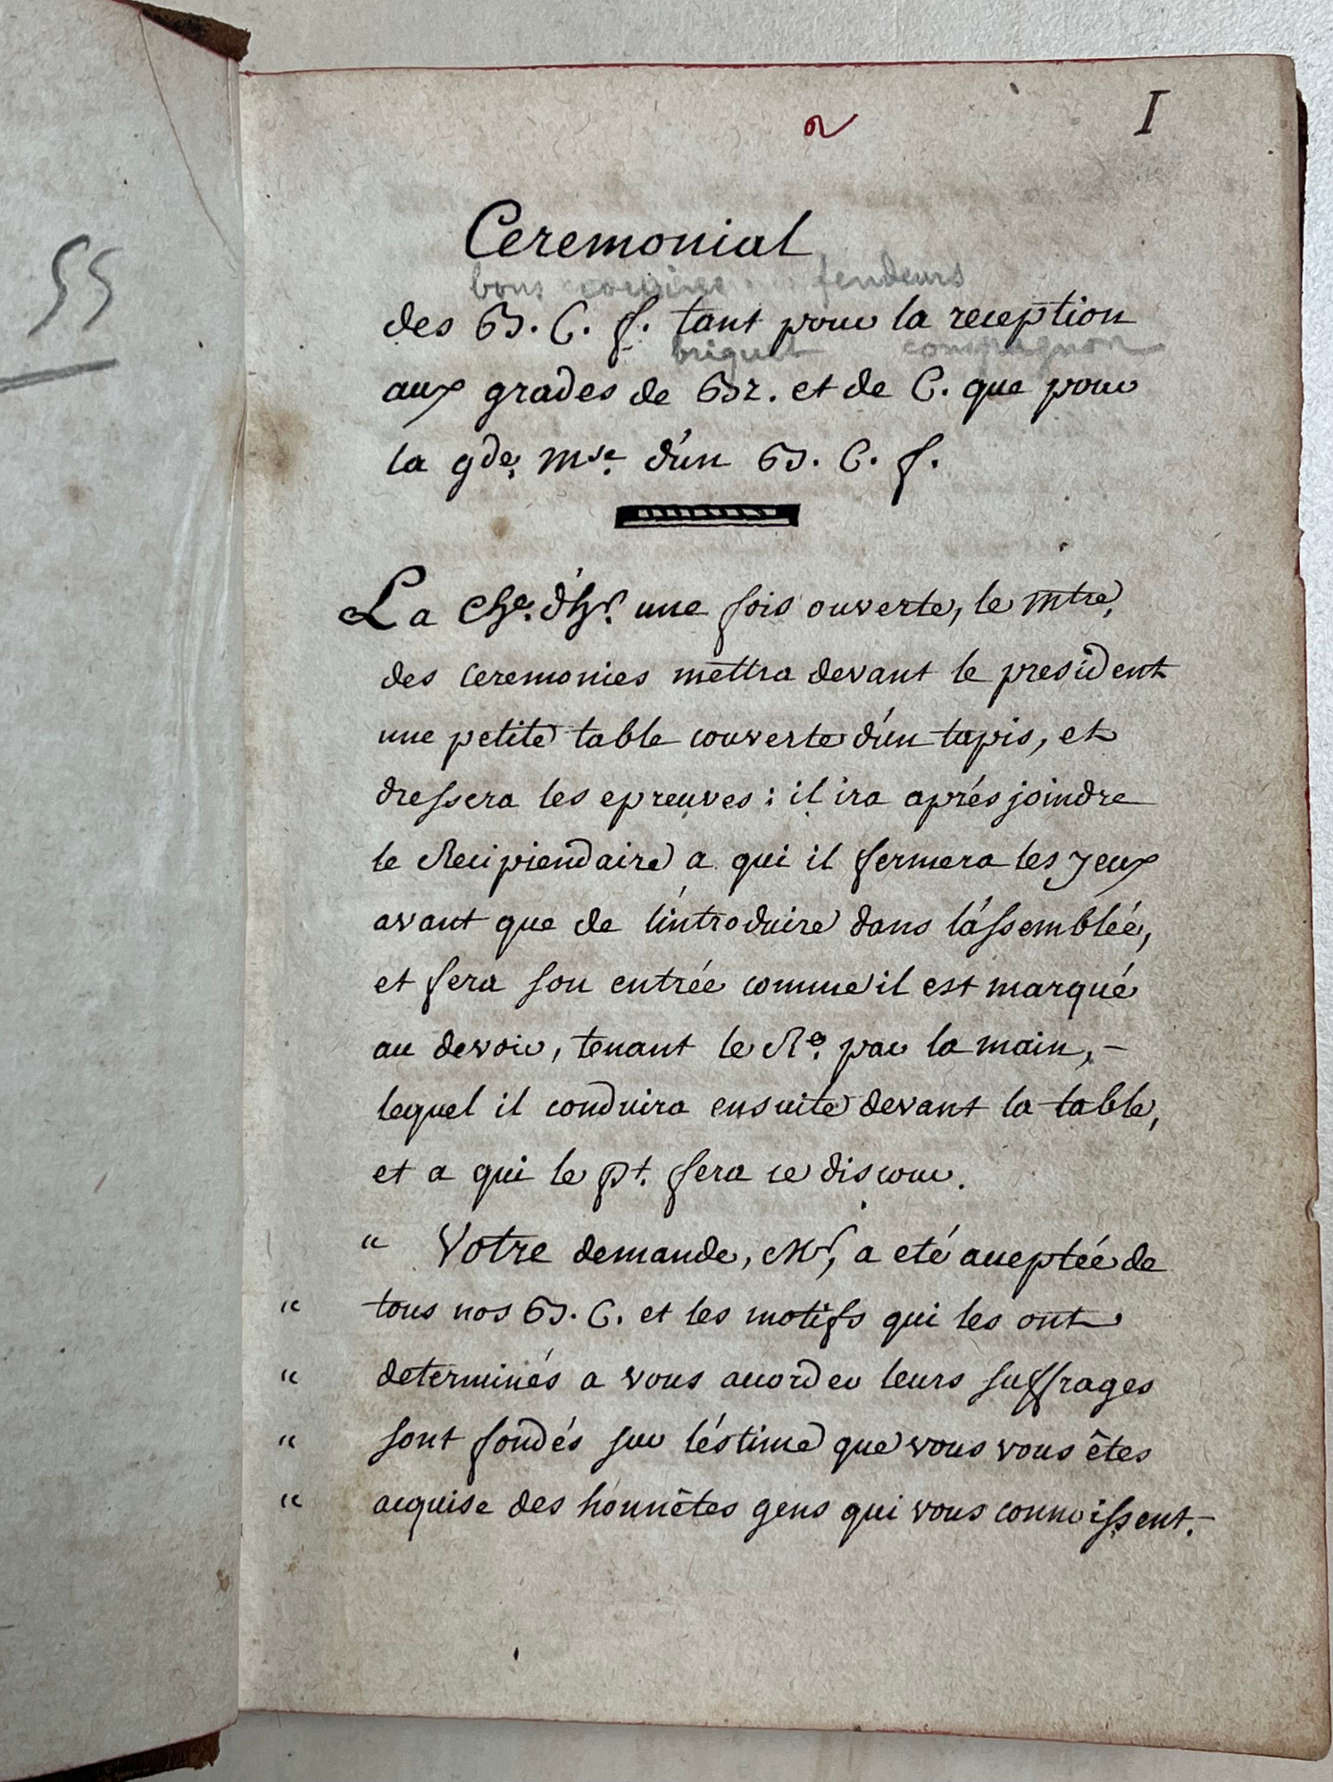 55
I
Ceremonial
bons cousins fendeurs
des B. C. f. tant pour la reception
briquet compagnon
aux grades de Br. et de C. que pour
la gde. mse. d'un B. C. f.
La Che. d'hr. une fois ouverte, le mtre.
des ceremonies mettra devant le president
une petite table couverte d'un tapis, et
dressera les epreuves : il ira aprés joindre
le Recipiendaire a qui il fermera les yeux
avant que de l'introduire dans l'assemblée,
et fera son entrée comme il est marqué
au devoir, tenant le Re. par la main, -
lequel il conduira ensuite devant la table,
et a qui le Pt. fera ce discour.
" Votre demande, Mr, a eté acceptée de
" tous nos B. C. et les motifs qui les ont
" determinés a vous accorder leurs suffrages
" sont fondés sur l'éstime que vous vous êtes
" acquise des honnêtes gens qui vous connoissent. -